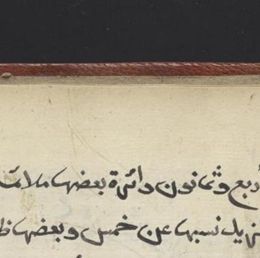 أربع وثمانون دائرة بعضها ملا
يزيد نسبها عن خمس وبعضها